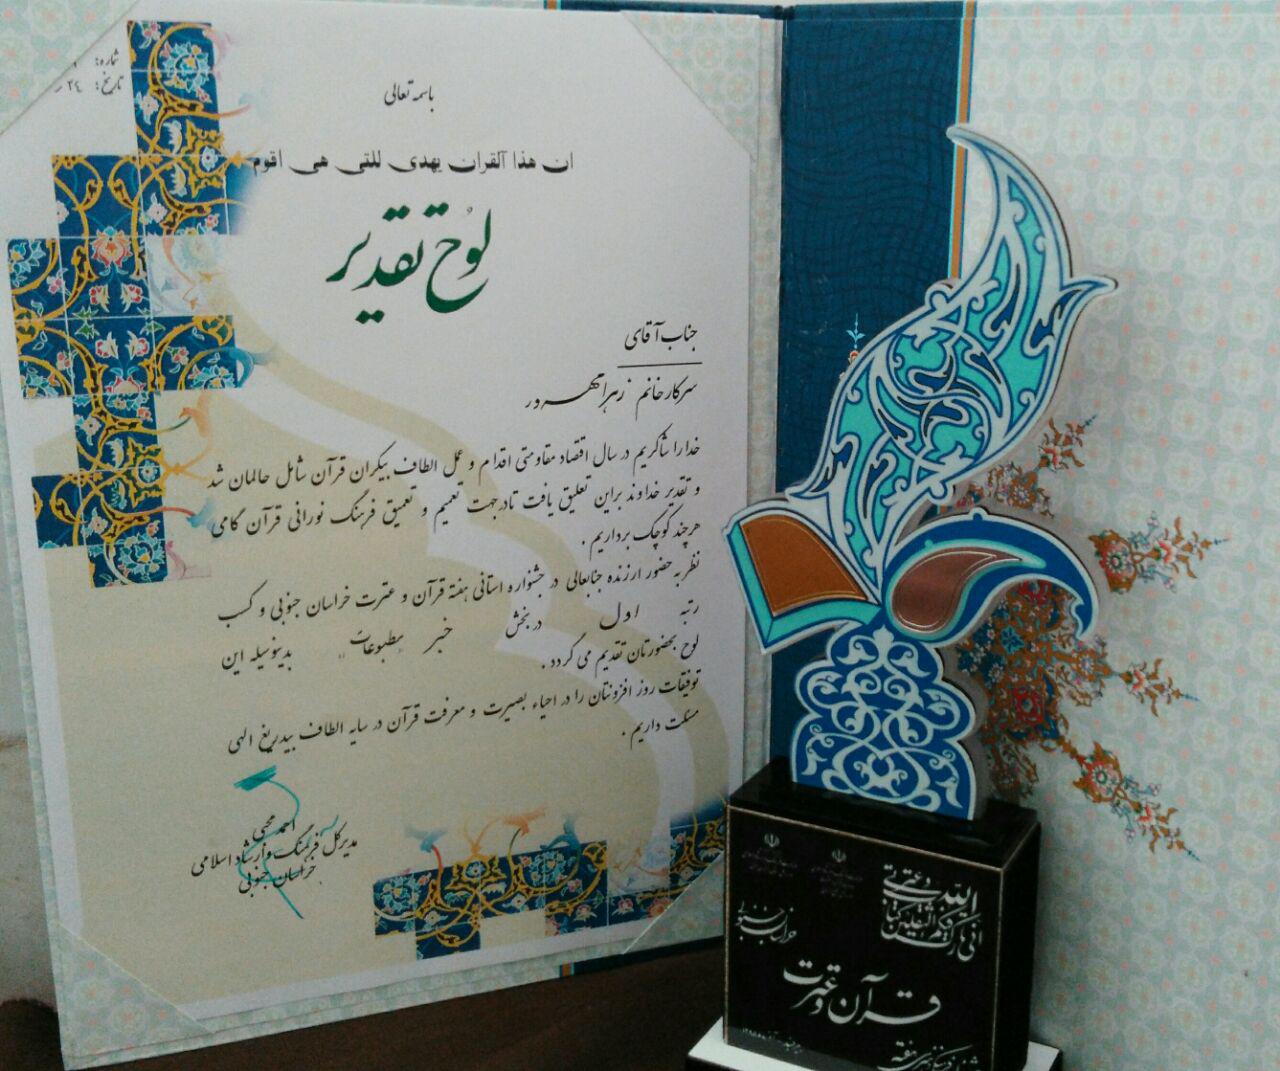 شماره:
تاریخ: ۲۴
باسمه تعالی
ان هذا القران یهدی للتی هی اقوم
لوح تقدیر
جناب آقای
سرکار خانم زهرا مهردر
خدا را شاکریم در سال اقتصاد مقاومتی اقدام و عمل الطاف بیکران قرآن شامل حالمان شد
و تقدیر خداوند براین تعلیق یافت تا در جهت تعمیم و تعمیق فرهنگ نورانی قرآن گامی
هر چند کوچک برداریم .
نظر به حضور ارزنده جنابعالی در جشنواره استانی هفته قرآن و عترت خراسان جنوبی و کسب
رتبه اول در بخش خبر "مطبوعات" بدینوسیله این
لوح بحضورتان تقدیم می گردد .
توفیقات روز افزونتان را در احیاء بصیرت و معرفت قرآن در سایه الطاف بیدریغ الهی
مسئلت داریم .
احمد محبی
مدیرکل فرهنگ و ارشاد اسلامی
خراسان جنوبی
انی تارک فیکم الثقلین کتاب الله و عترتی
خراسان جنوبی
قرآن و عترت
هفته